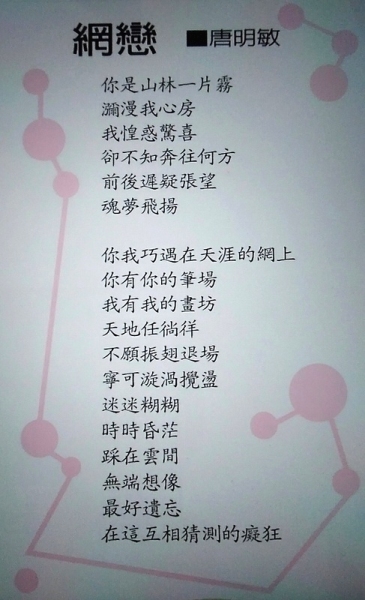 網戀 ■唐明敏
你是山林一片霧
瀰漫我心房
我惶惑驚喜
卻不知奔往何方
前後遲疑張望
魂夢飛揚
你我巧遇在天涯的網上
你有你的筆場
我有我的畫坊
天地任徜徉
不願振翅退場
寧可漩渦攪盪
迷迷糊糊
時時昏茫
踩在雲間
無端想像
最好遺忘
在這互相猜測的癡狂